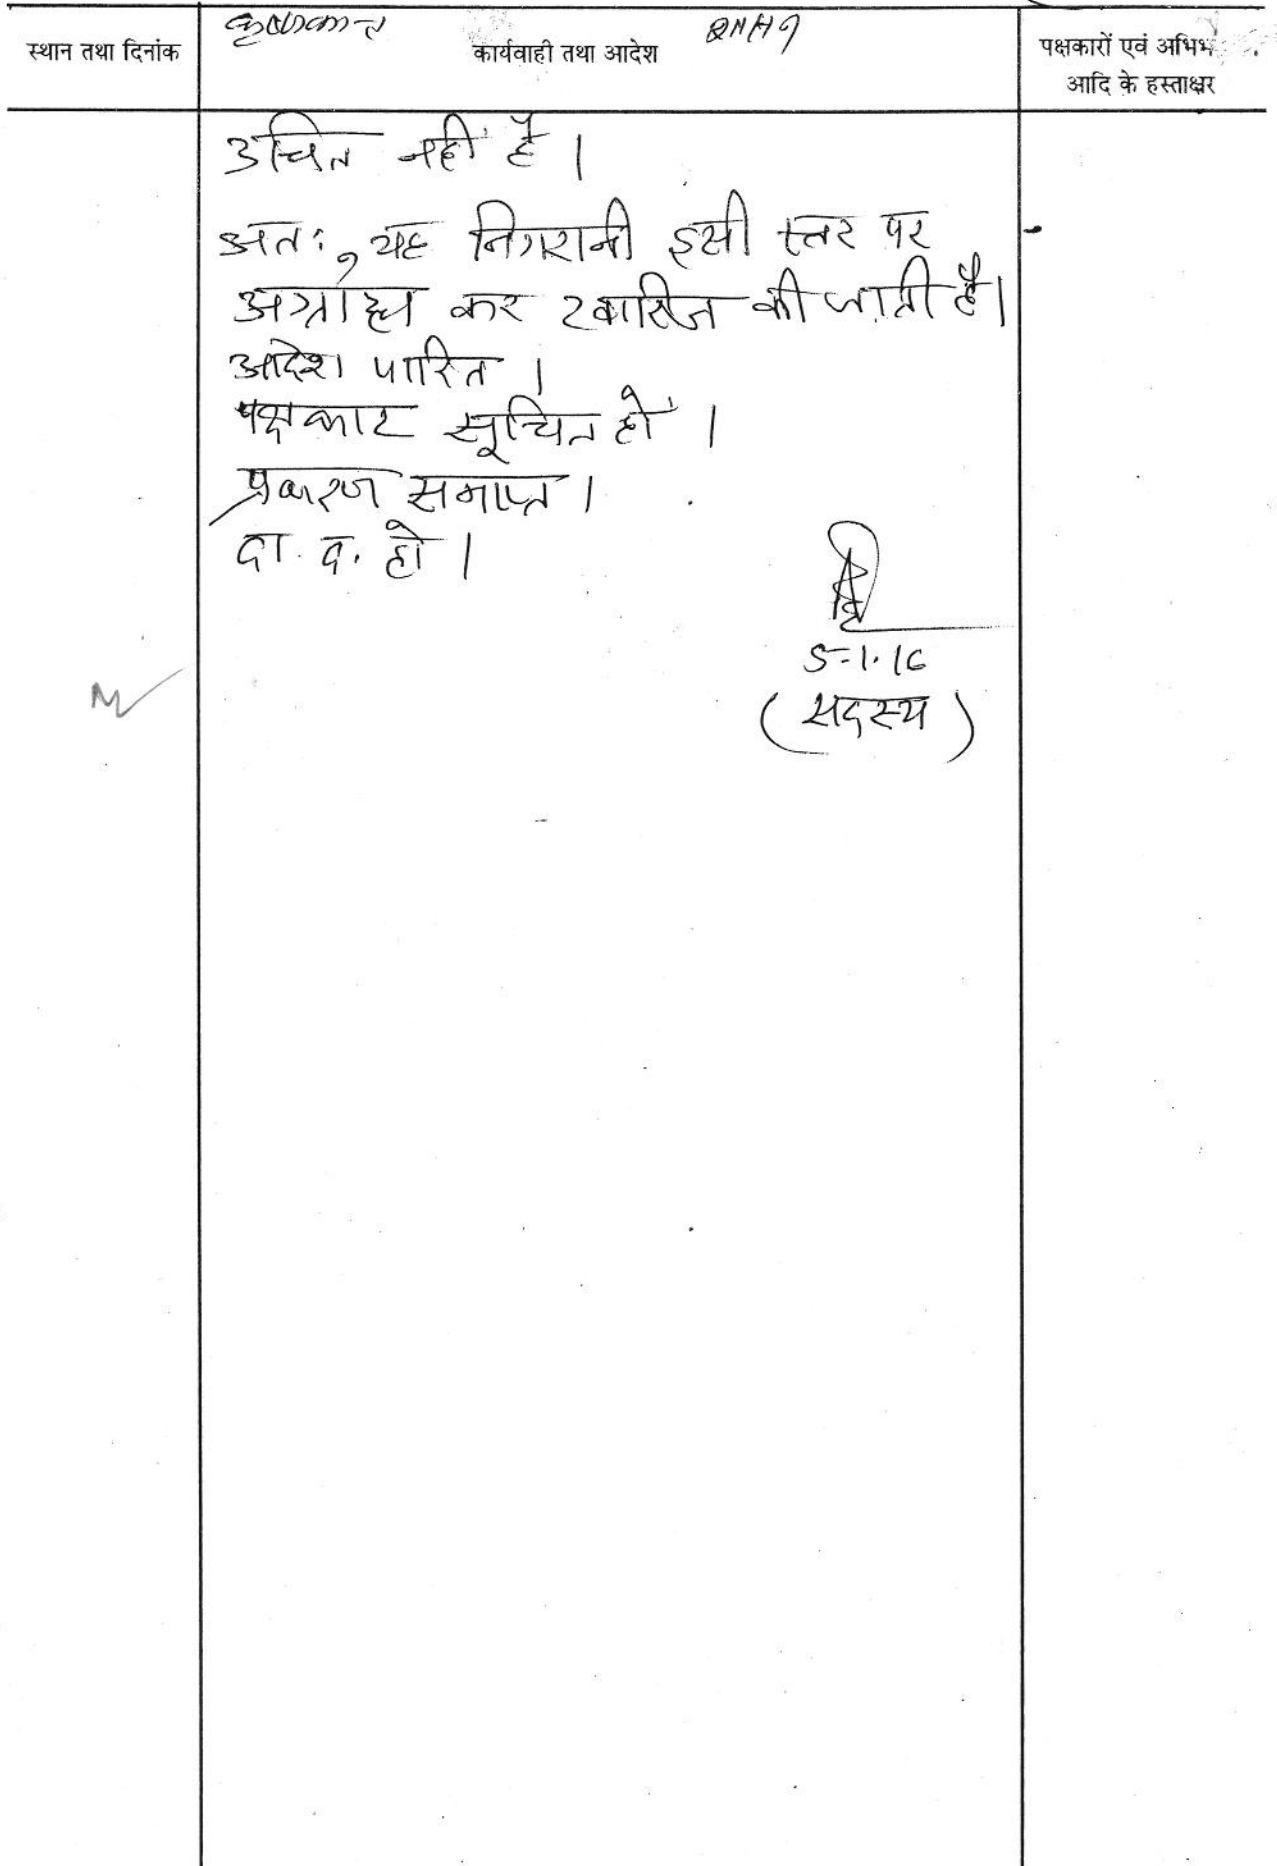 कृष्णकान्त
स्थान तथा दिनांक
कार्यवाही तथा आदेश
पक्षकारों एवं अभिभ
आदि के हस्ताक्षर
उचित नहीं है ।
अतः, यह निगरानी इसी स्तर पर
अग्राह्य कर खारिज की जाती है।
आदेश पारित ।
पक्षकार सूचित हों ।
प्रकरण समाप्त ।
दा. द. हो ।
5.1.16
(सदस्य)